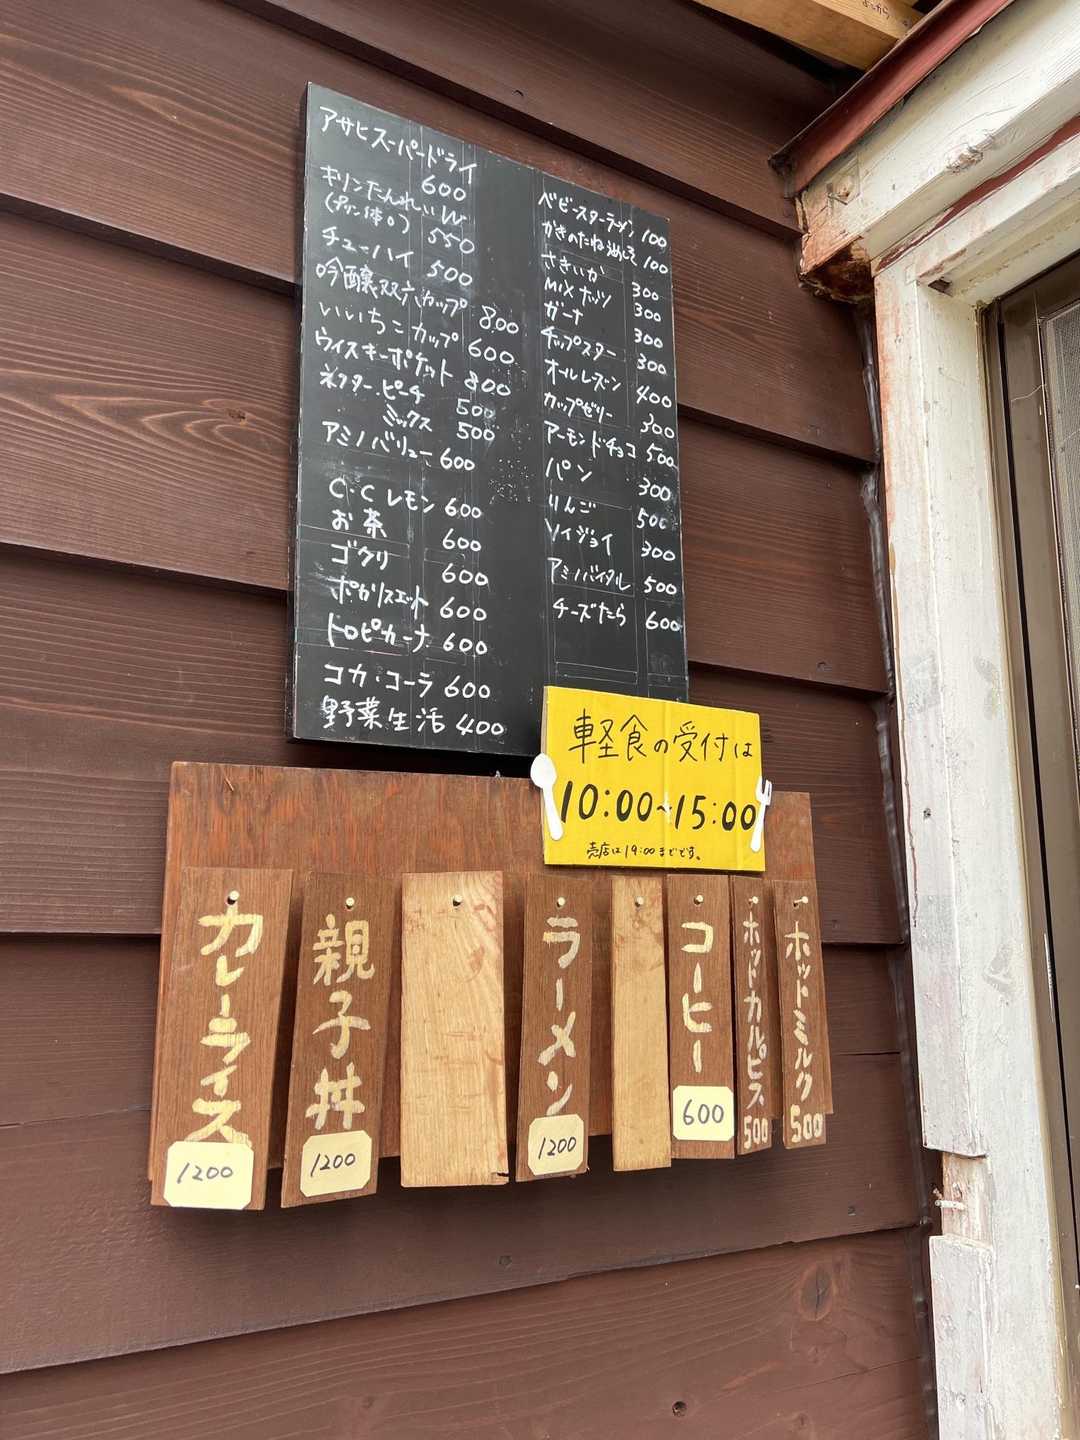 アサヒスーパードライ
600
キリンたんれいW
(プリン体0) 550
チューハイ 500
吟醸双六カップ 800
いいちこカップ 600
ウイスキーポケット 800
ネクター ピーチ 500
ミックス 500
アミノバリュー 600
C.Cレモン 600
お茶 600
ゴクリ 600
ポカリスエット 600
トロピカーナ 600
コカ・コーラ 600
野菜生活 400
ベビースターラーメン 100
かきのたね 100
さきいか 300
MIXナッツ 300
ガーナ 300
チップスター 300
オールレーズン 400
カップゼリー 300
アーモンドチョコ 500
パン 300
りんご 500
ソイジョイ 300
アミノバイタル 500
チーズたら 600
軽食の受付は
10:00~15:00
売店は19:00までです。
カレーライス
1200
親子丼
1200
ラーメン
1200
コーヒー
600
ホットカルピス
500
ホットミルク
500